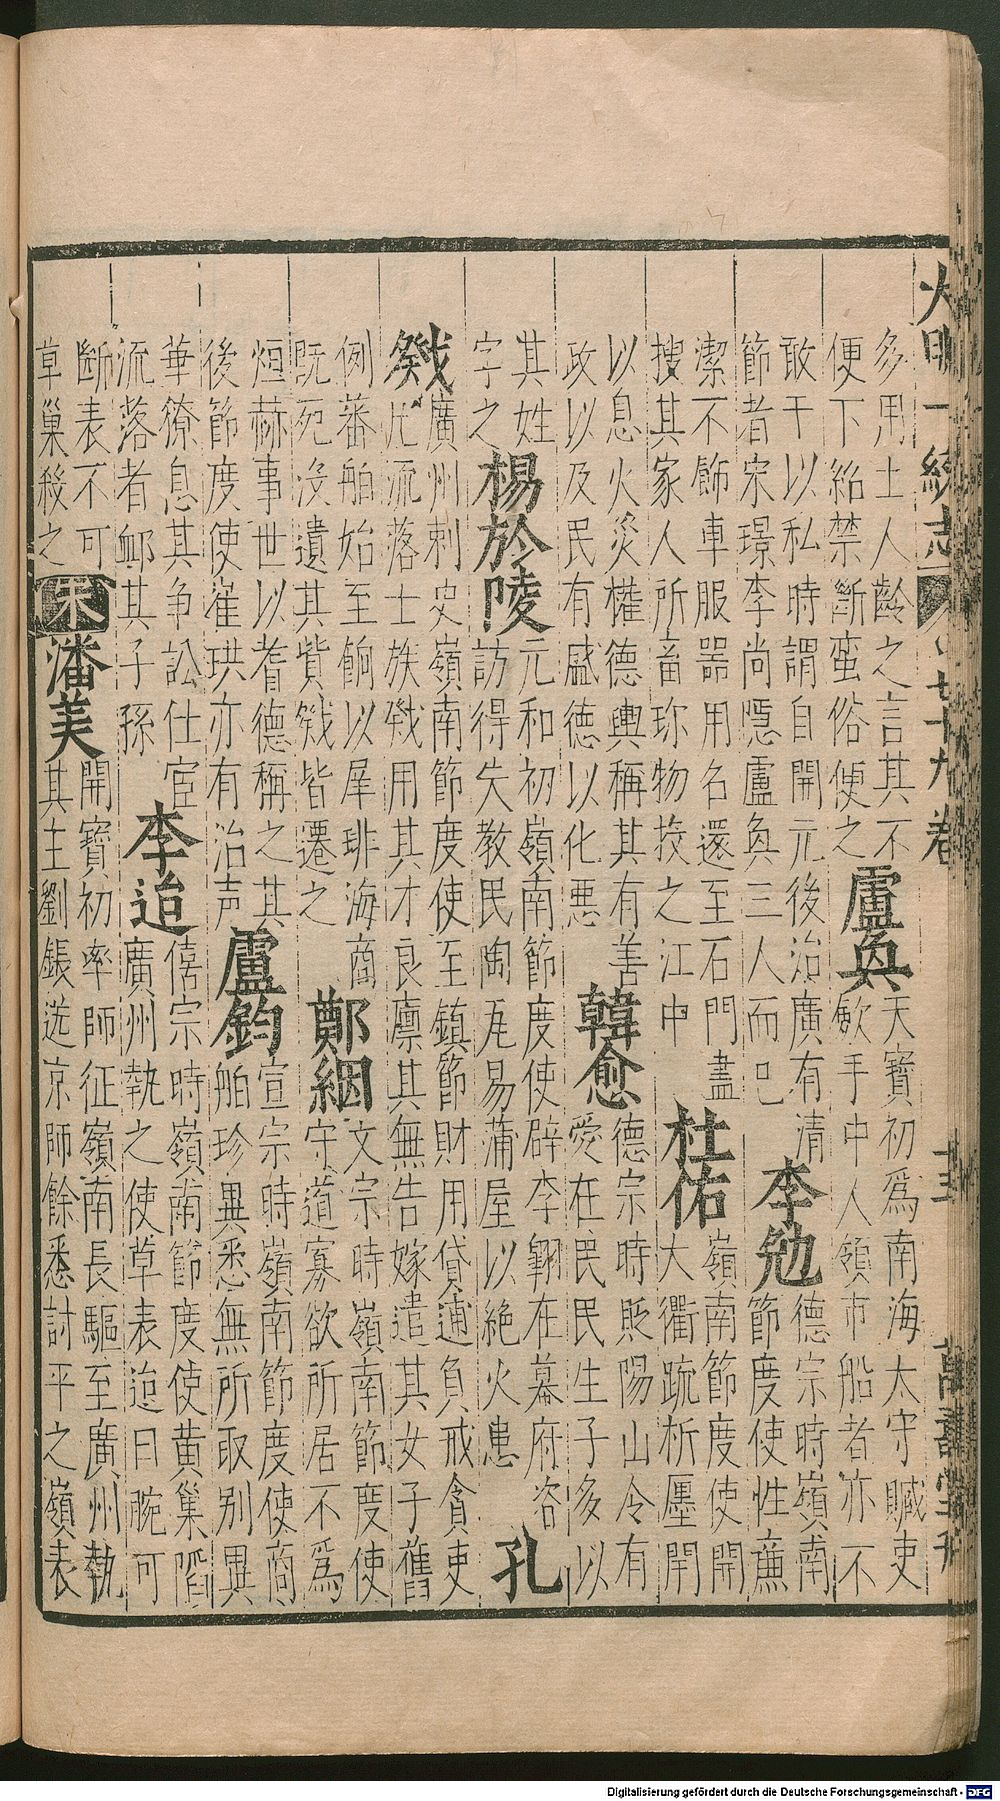 大明一統志 七十九卷 十五 萬壽堂刊
多用土人齡之言其不
便下詔禁斷蛮俗便之
盧奐
天寶初爲南海太守贓吏
歛手中人領市船者亦不
敢干以私時謂自開元後治廣有清
節者宋璟李尚隱盧奐三人而已
李勉
德宗時嶺南
節度使性㢘
潔不飾車服噐用名還至石門盡
搜其家人所畜珎物投之江中
杜佑
嶺南節度使開
大衢疏析廛閈
以息火災權德輿稱其有善
政以及民有感德以化悪
韓愈
德宗時貶陽山令有
愛在民民生子多以
其姓
字之
楊於陵
元和初嶺南節度使辟李翶在幕府咨
訪得失教民陶瓦易蒲屋以絶火患
孔
戣
廣州刺史嶺南節度使至鎮節財用貸逋負戒貪吏
凡流落士族戣用其才良廪其無告嫁遣其女子舊
例蕃舶始至餉以犀琲海商
既死没遺其貲戣皆還之
鄭絪
文宗時嶺南節度使
守道寡欲所居不爲
烜赫事世以耆德稱之其
後節度使崔珙亦有治声
盧鈞
宣宗時嶺南節度使商
舶珍異悉無所取别異
華獠息其争訟仕宦
流落者䘏其子孫
李迢
僖宗時嶺南節度使黄巢䧟
廣州執之使草表迢曰腕可
斷表不可
草巢殺之
宋
潘美
開寶初率師征嶺南長驅至廣州執
其主劉鋹送京師餘悉討平之嶺表
Digitalisierung gefördert durch die Deutsche Forschungsgemeinschaft - DFG